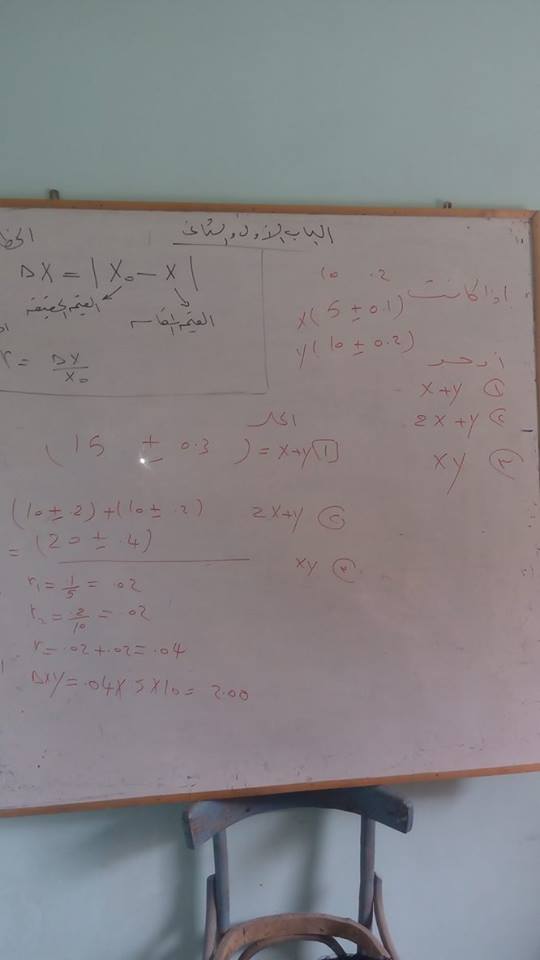 الباب الأول والثانى
الخط
ΔX = | X₀ − X |
القيمة الحقيقة
القيمة المقاسه
r = ΔX / X₀
10 .2
اذا كانت
X(5 ± 0.1)
y(10 ± 0.2)
أوجد
① X+y
② 2X+y
③ Xy
الحل
[1] X+y = (15 ± 0.3)
② 2X+y
(10 ± .2) + (10 ± .2)
= (20 ± .4)
③ Xy
r₁ = .1/5 = .02
r₂ = .2/10 = .02
r = .02 + .02 = .04
ΔXy = .04 X 5 X 10 = 2.00